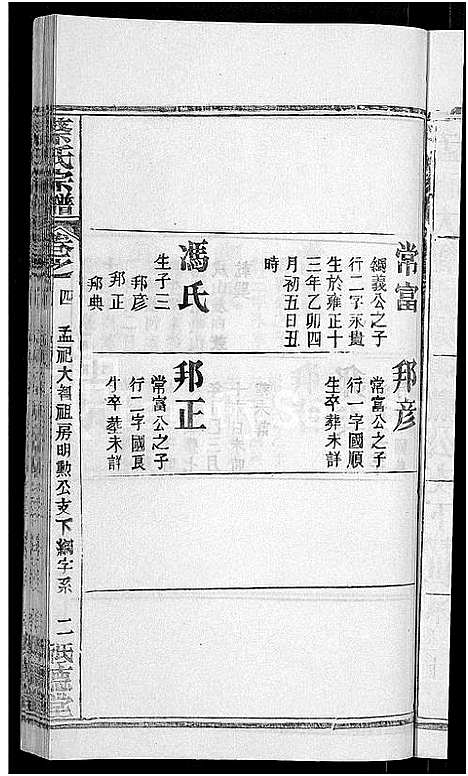 常富
綱義公之子
行二字永貴
生於雍正十
三年乙卯四
月初五日丑
時
馮氏
生子三
邦彦
邦正
邦典
邦彦
常富公之子
行一字國順
生卒葬未詳
邦正
常富公之子
行二字國良
生卒葬未詳
蔡氏宗譜
四
孟祀大智祖房明勲公支下綱字系
二